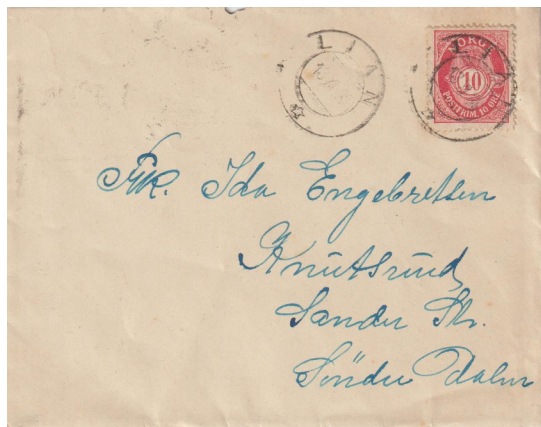 LIAN
NORGE
10
POSTFRIM. 10 ØRE
LIAN
Frk. Ida Engebretsen
Knutsrud,
Sander St.
Søndre Dalen